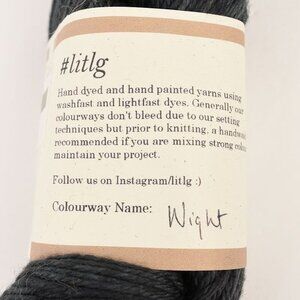 #litlg
Hand dyed and hand painted yarns using
washfast and lightfast dyes. Generally our
colourways don't bleed due to our setting
techniques but prior to knitting, a handwash
recommended if you are mixing strong colou
maintain your project.
Follow us on Instagram/litlg :)
Colourway Name: Wight